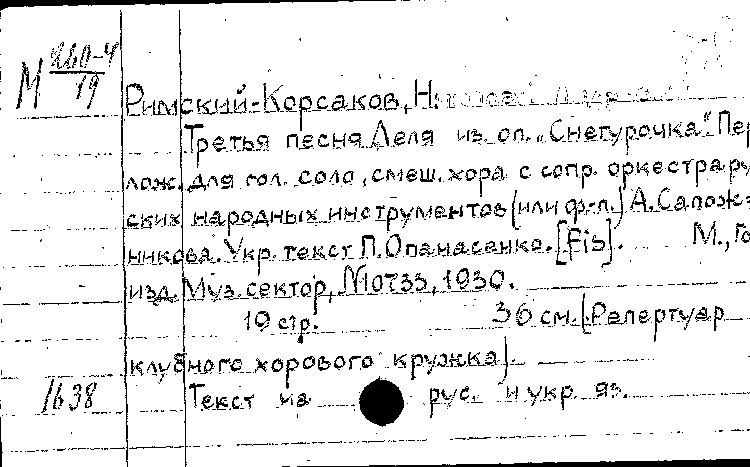 М 260-4
19
Римский-Корсаков, Н.
Третья песня Леля из оп. „Снегурочка". Пер
лож. для гол. соло, смеш. хора с сопр. оркестра ру
ских народных инструментов (или ф-п.) А. Сапож-
никова. Укр. текст П. Опанасенко. [Fis]. М., Го
изд. Муз. сектор, 1930.
19 стр. 36 см. (Репертуар
клубного хорового кружка)
1638 Текст на рус. и укр. яз.